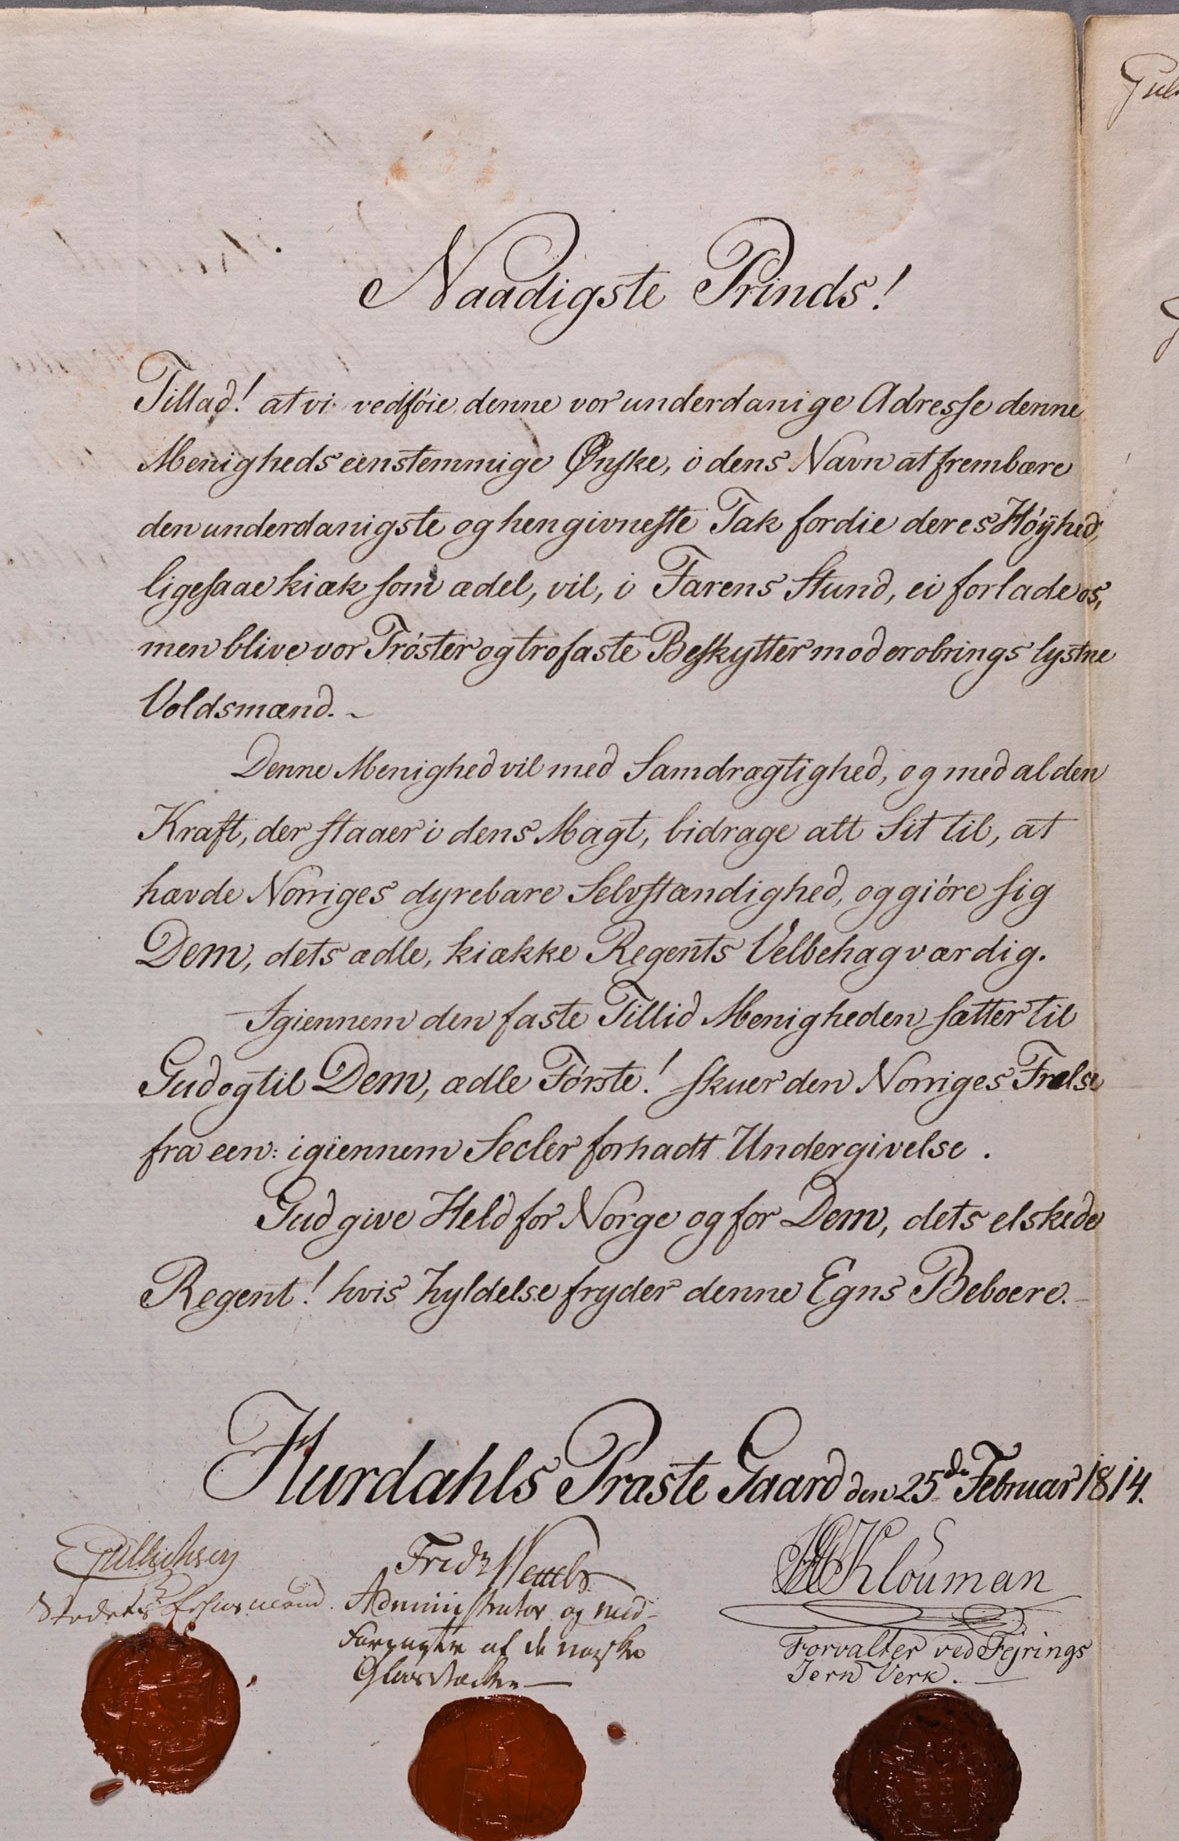 Naadigste Prinds!
Tillad! at vi vedføie denne vor underdanige Adresse denne
Menigheds eenstemmige Ønske, i dens Navn at frembære
den underdanigste og hengivneste Tak fordie deres Høÿhed,
ligesaae kiæk som ædel, vil, i Farens Stund, ei forlade os,
men blive vor Trøster og trofaste Beskytter mod erobrings lystne
Voldsmænd. ~
Denne Menighed vil med Samdrægtighed, og med al den
Kraft, der staaer i dens Magt, bidrage alt Sit til, at
hævde Norriges dyrebare Selvstændighed, og giøre sig
Dem, dets ædle, kiække Regents Velbehag værdig.
Igiennem den faste Tillid Menigheden sætter til
Gud og til Dem, ædle Første! skuer den Norriges Frelse
fra een: igiennem Secler forhadt Undergivelse.
Gud give Held for Norge og for Dem, dets elskede
Regent! hvis hyldelse fryder denne Egns Beboere.
Hurdahls Præste Gaard den 25de Februar 1814.
Stedets
Fridr
Administrator og med-
Forpagter af de norske
Glasværker
Klouman
Forvalter ved Fejrings
Jern Verk.